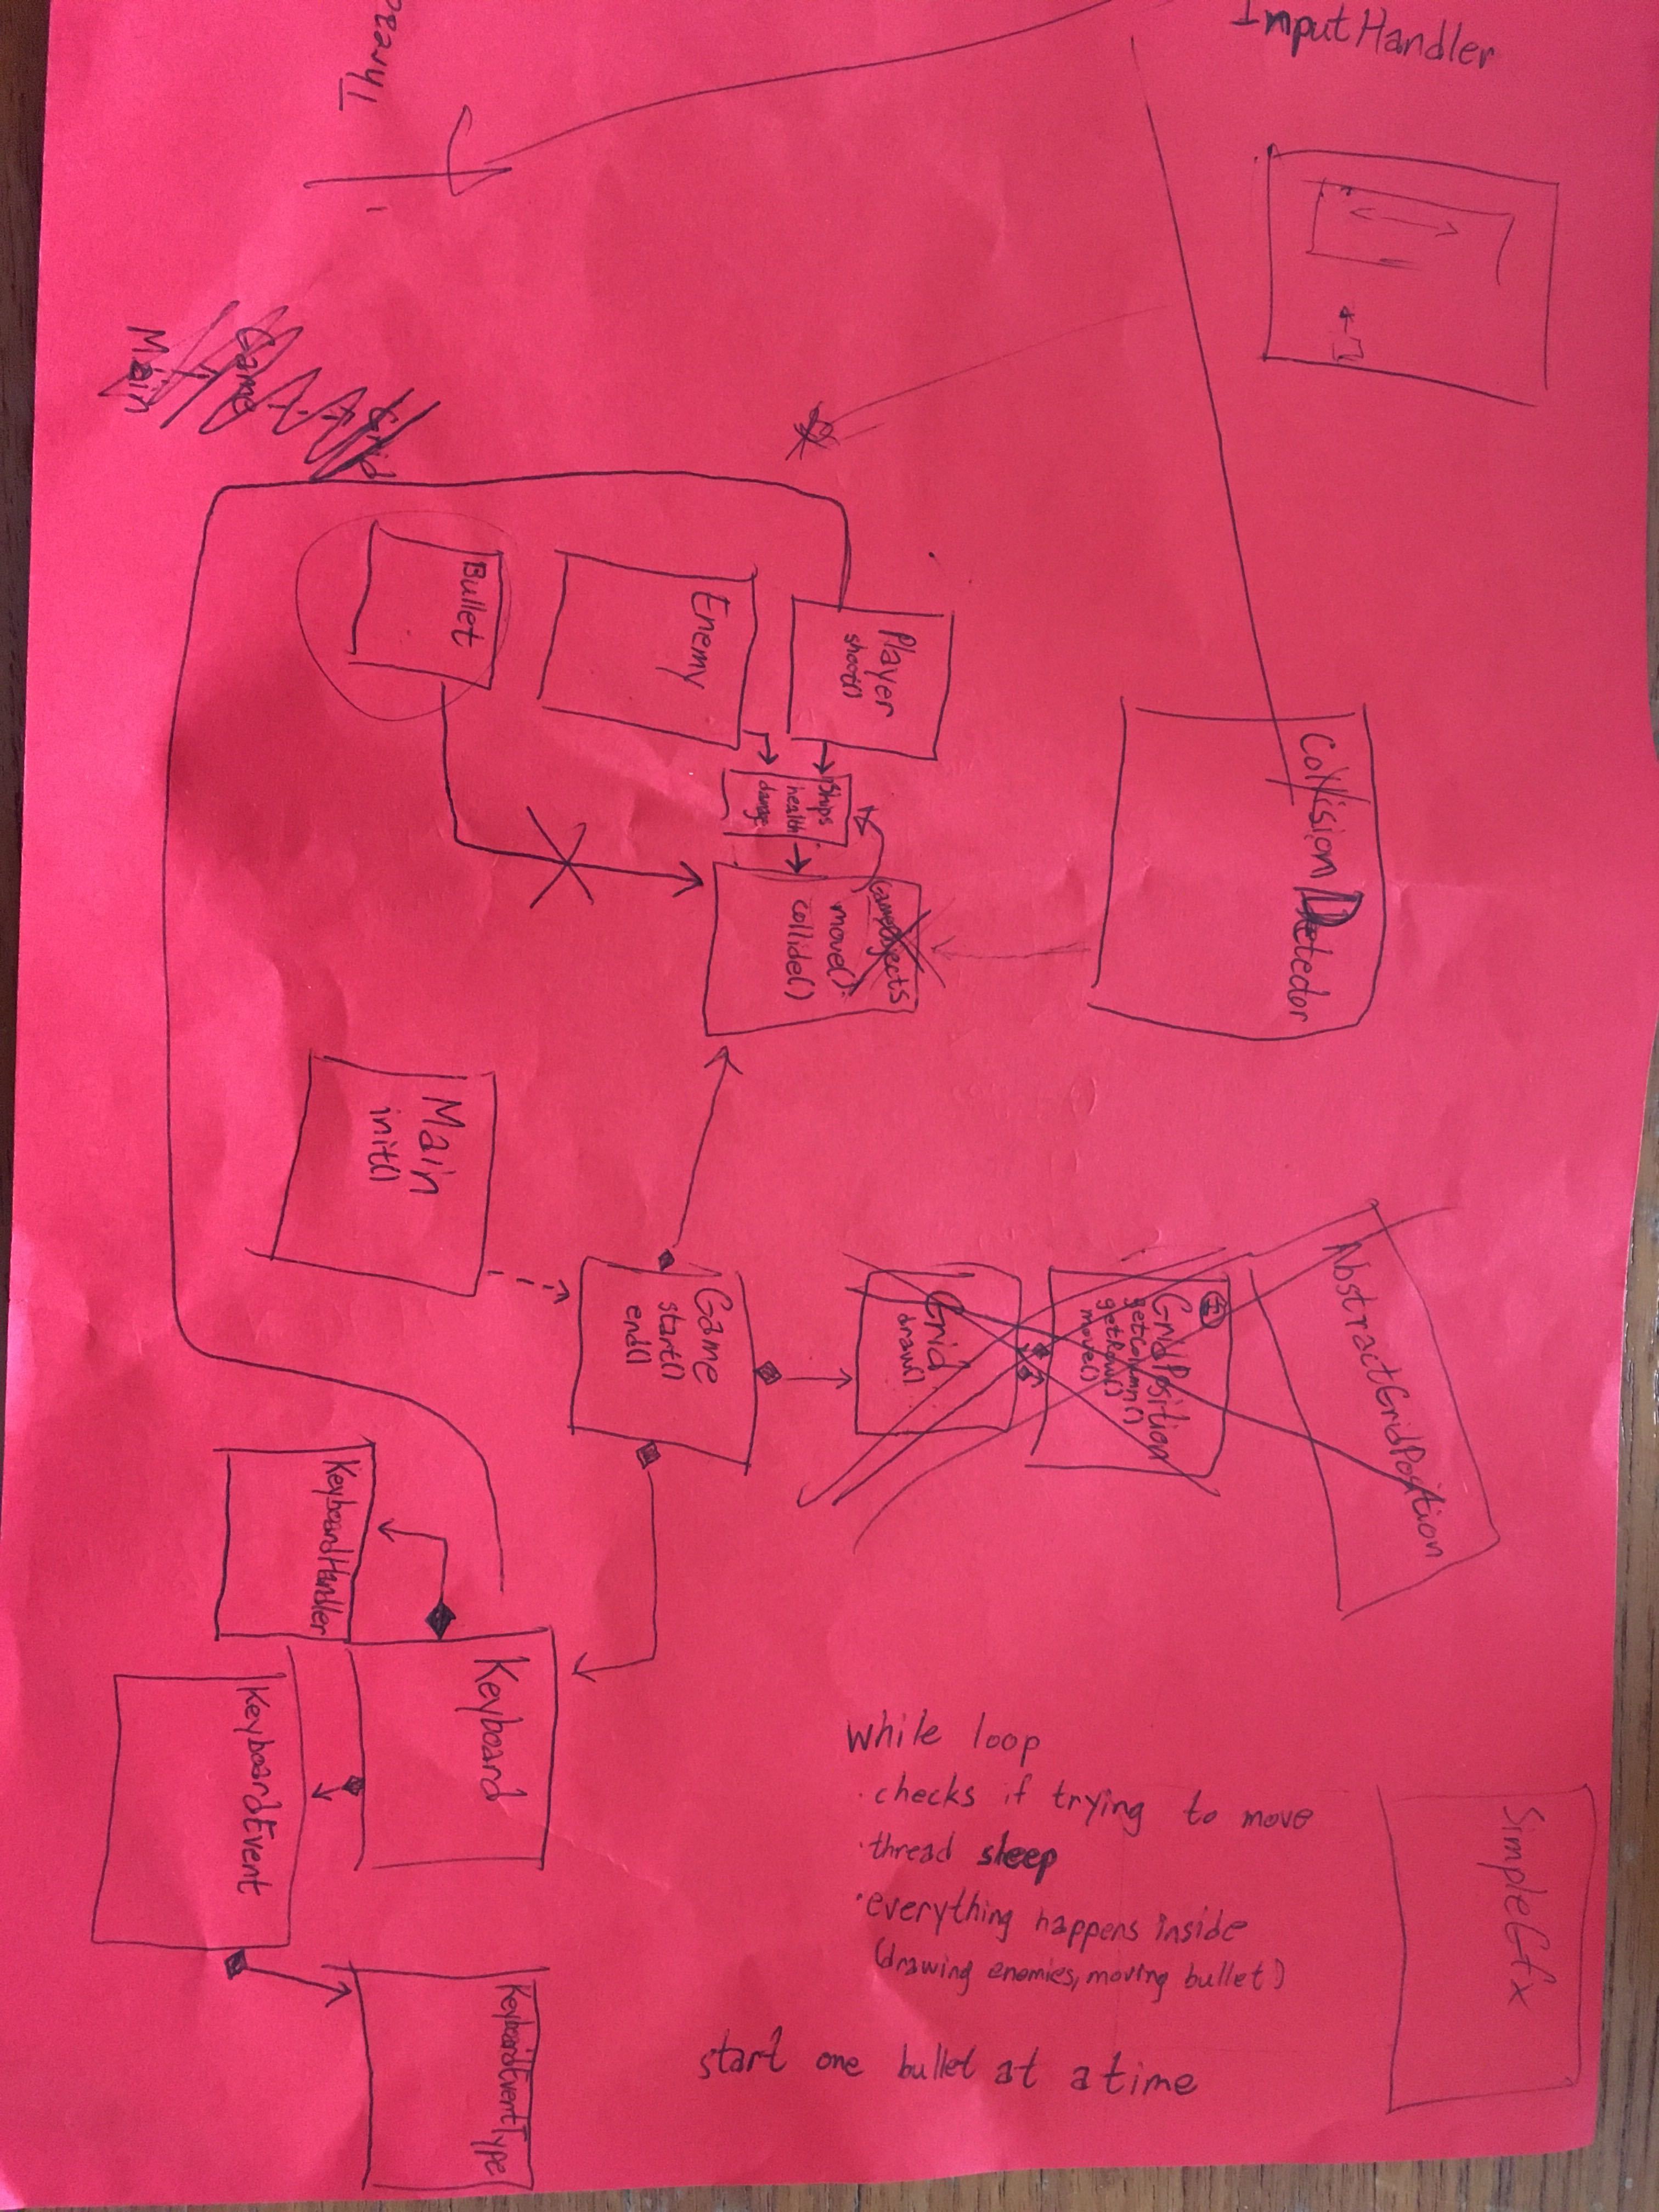 InputHandler
SimpleGfx
AbstractGridPosition
Collision Detector
I
GridPosition
getColumn()
getRow()
move()
Grid
draw()
while loop
· checks if trying to move
· thread sleep
· everything happens inside
(drawing enemies, moving bullet)
start one bullet at a time
Player
shoot()
Ships
health
damage
GameObjects
move()
collide()
Enemy
Game
start()
end()
Bullet
Main
init()
Keyboard
KeyboardEventType
KeyboardHandler
KeyboardEvent
Grid
Game
Main